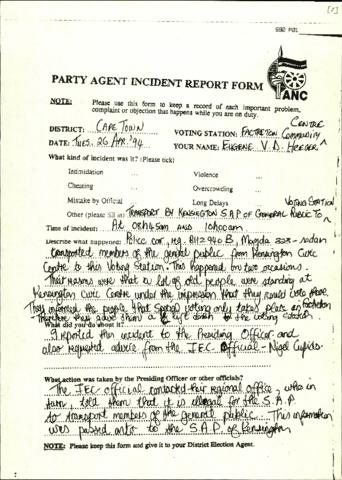 [2]
PARTY AGENT INCIDENT REPORT FORM
ANC
NOTE: Please use this form to keep a record of each important problem, complaint or objection that happens while you are on duty.
CENTRE
DISTRICT: CAPE TOWN VOTING STATION: FACTRETON COMMUNITY ^
DATE: TUES. 26 APR. '94 YOUR NAME: EUGENE V.D. HEEVER
What kind of incident was it? (Please tick)
Intimidation ... Violence ...
Cheating ... Overcrowding ...
Mistake by Official ... Long Delays VOTING STATION
Other (please fill in) TRANSPORT BY KENSINGTON S.A.P. OF GENERAL PUBLIC TO ^
Time of incident: At 08h45am and 10h00am
Describe what happened: Police car, reg. BHZ 940 B, Mazda 323 - sedan
transported members of the general public from Kensington Civic
Centre to this Voting Station. This happened on two occasions.
Their reasons were that a lot of old people were standing at
Kensington Civic Centre under the impression that they could vote there.
They informed the people that special voting only takes place in Factreton
therefore they gave them a lift down to the voting station.
What did you do about it?
I reported this incident to the Presiding Officer and
also requested advice from the IEC Official - Nigel Cupido.
What action was taken by the Presiding Officer or other officials?
The IEC official contacted their regional office, who in
turn, told them that it is illegal for the S.A.P
to transport members of the general public. This information
was passed onto to the S.A.P of Kensington
NOTE: Please keep this form and give it to your District Election Agent.